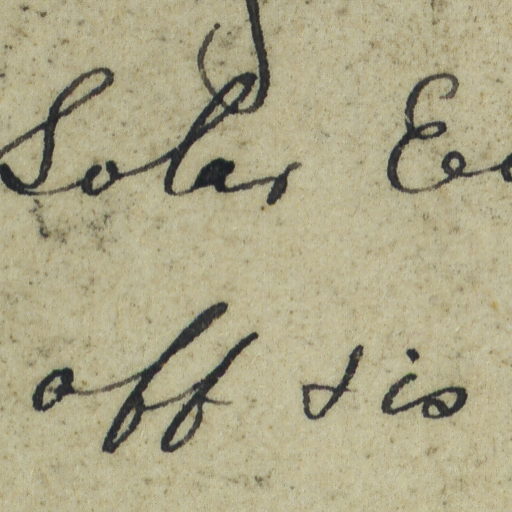 Solar Ec
off & is